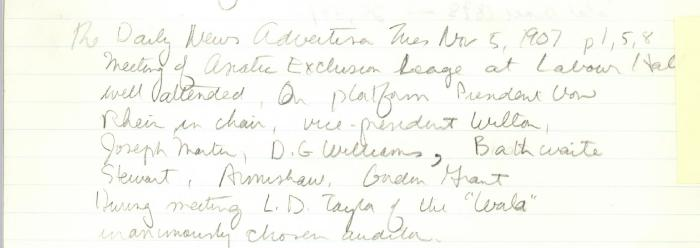 The Daily News Advertiser Tues Nov 5, 1907 p1,5,8
Meeting of Asiatic Exclusion Leage at Labour Hall
well attended, On platform President Von
Rhein in chair, vice-president Wilton,
Joseph Martin, D.G Williams, Bathwaite
Stewart, Armishaw, Gordon Grant
During meeting L.D. Taylor of the "Wold"
unanimously chosen auditor.